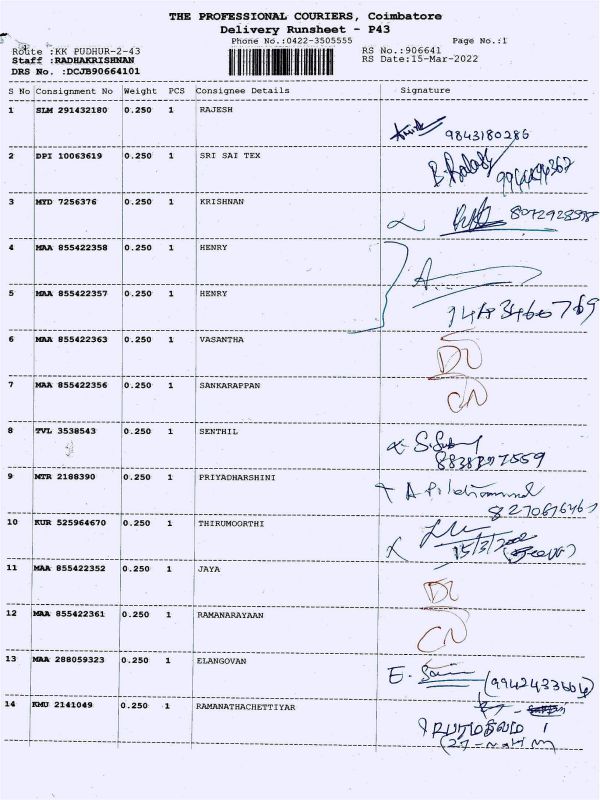 THE PROFESSIONAL COURIERS, Coimbatore
Delivery Runsheet - P43
Phone No.:0422-3505555 Page No.:1
Route :KK PUDHUR-2-43 RS No.:906641
Staff :RADHAKRISHNAN RS Date:15-Mar-2022
DRS No. :DCJB90664101
S No Consignment No Weight PCS Consignee Details Signature
1 SLM 291432180 0.250 1 RAJESH
9843180286
2 DPI 10063619 0.250 1 SRI SAI TEX
3 MYD 7256376 0.250 1 KRISHNAN
4 MAA 855422358 0.250 1 HENRY
5 MAA 855422357 0.250 1 HENRY
6 MAA 855422363 0.250 1 VASANTHA
DL
7 MAA 855422356 0.250 1 SANKARAPPAN
CN
8 TVL 3538543 0.250 1 SENTHIL
9 MTR 2188390 0.250 1 PRIYADHARSHINI
10 KUR 525964670 0.250 1 THIRUMOORTHI
11 MAA 855422352 0.250 1 JAYA
DL
12 MAA 855422361 0.250 1 RAMANARAYAAN
CN
13 MAA 288059323 0.250 1 ELANGOVAN
E.
14 KMU 2141049 0.250 1 RAMANATHACHETTIYAR